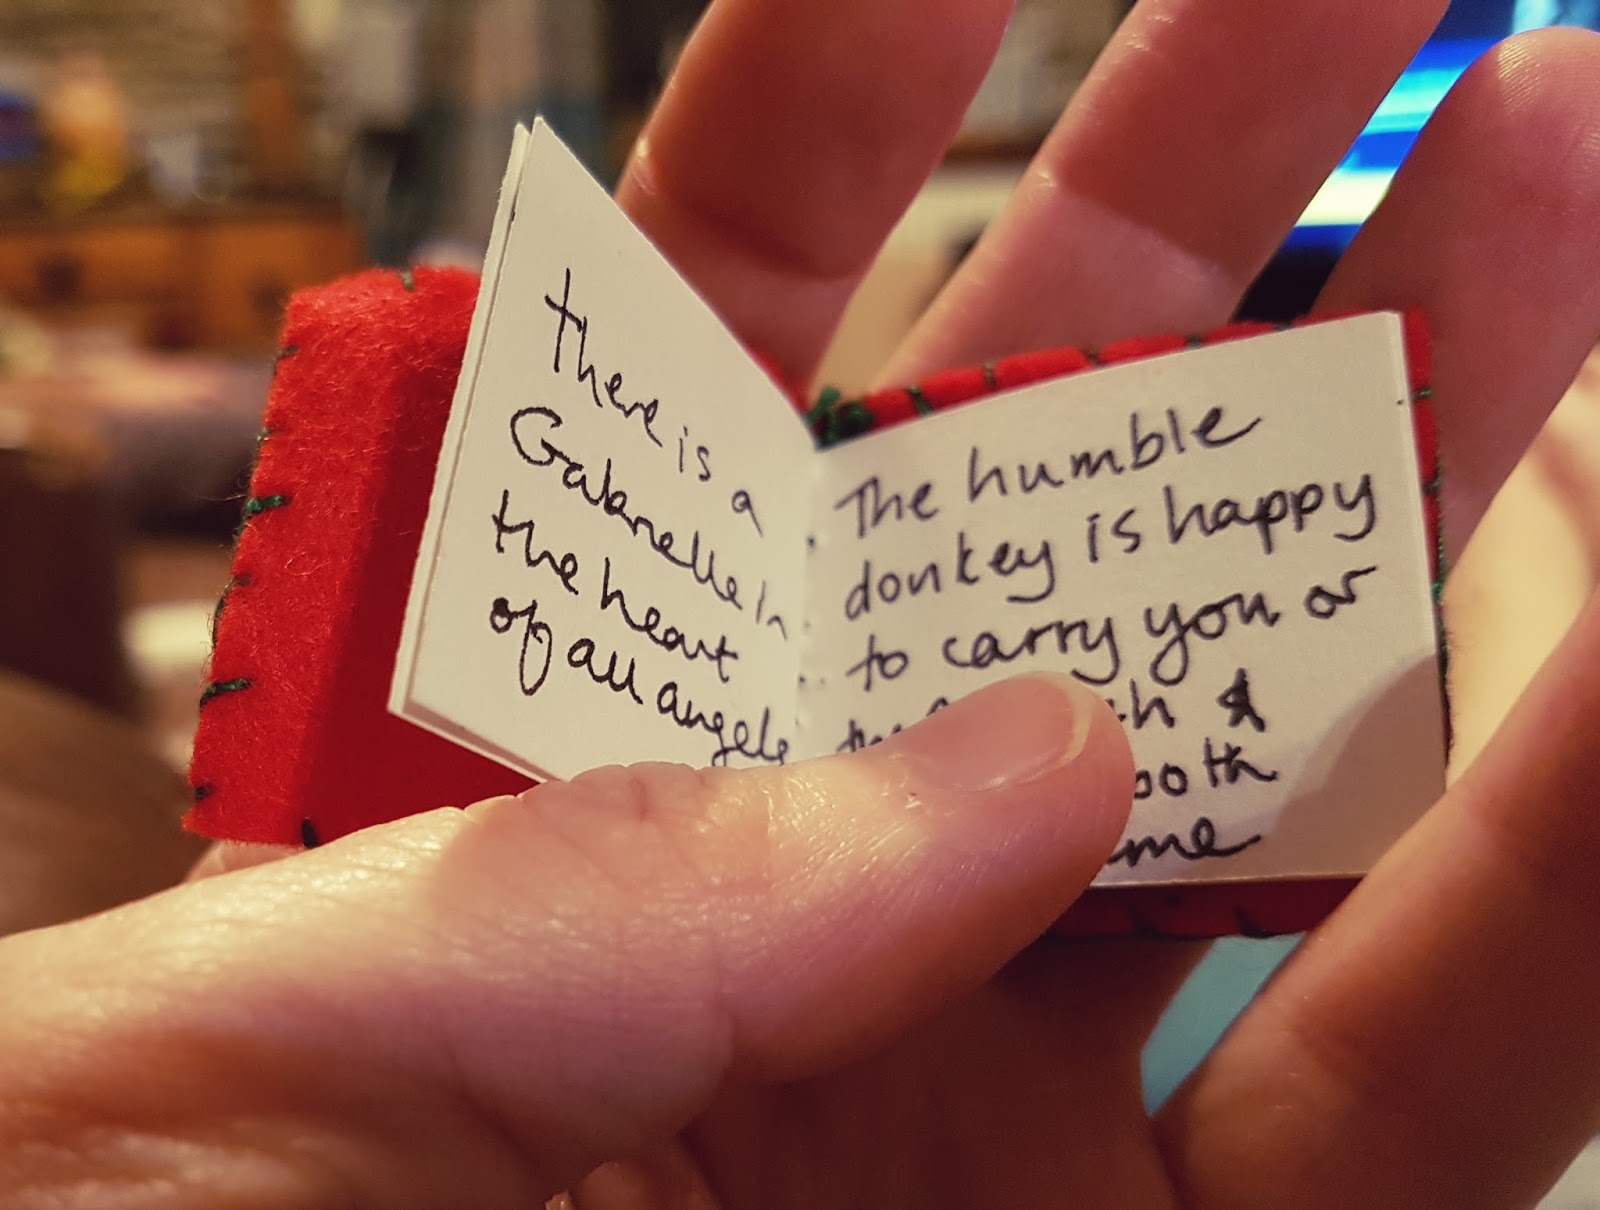 There is a
Gabrielle in
the heart
of all angels
The humble
donkey is happy
to carry you or
&
both
me